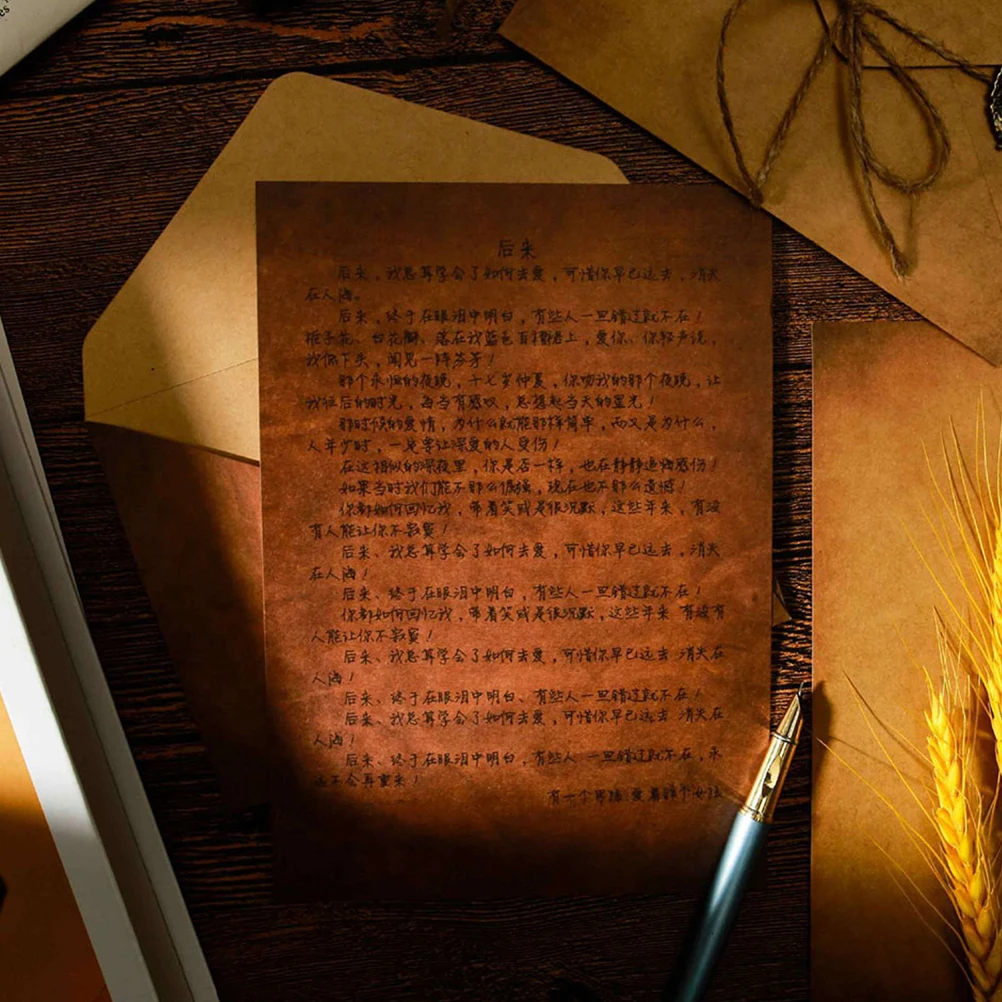 es
后来
后来，我总算学会了如何去爱，可惜你早已远去，消失
在人海。
后来，终于在眼泪中明白，有些人一旦错过就不在！
栀子花、白花瓣、落在我蓝色百褶裙上，爱你、你轻声说，
我低下头，闻见一阵芬芳！
那个永恒的夜晚，十七岁仲夏，你吻我的那个夜晚，让
我往后的时光，每当有感叹，总想起当天的星光！
那时候的爱情，为什么就能那样简单，而又是为什么，
人年少时，一定要让深爱的人受伤！
在这相似的深夜里，你是否一样，也在静静追悔感伤！
如果当时我们能不那么倔强，现在也不那么遗憾！
你都如何回忆我，带着笑或是很沉默，这些年来，有没
有人能让你不寂寞！
后来、我总算学会了如何去爱，可惜你早已远去，消失
在人海！
后来、终于在眼泪中明白，有些人一旦错过就不在！
你都如何回忆我，带着笑或是很沉默，这些年来 有没有
人能让你不寂寞！
后来、我总算学会了如何去爱，可惜你早已远去 消失在
人海！
后来、终于在眼泪中明白、有些人一旦错过就不在！
后来、我总算学会了如何去爱，可惜你早已远去 消失在
人海！
后来、终于在眼泪中明白，有些人 一旦错过就不在，永
远不会再重来！
有一个男孩 爱着那个女孩